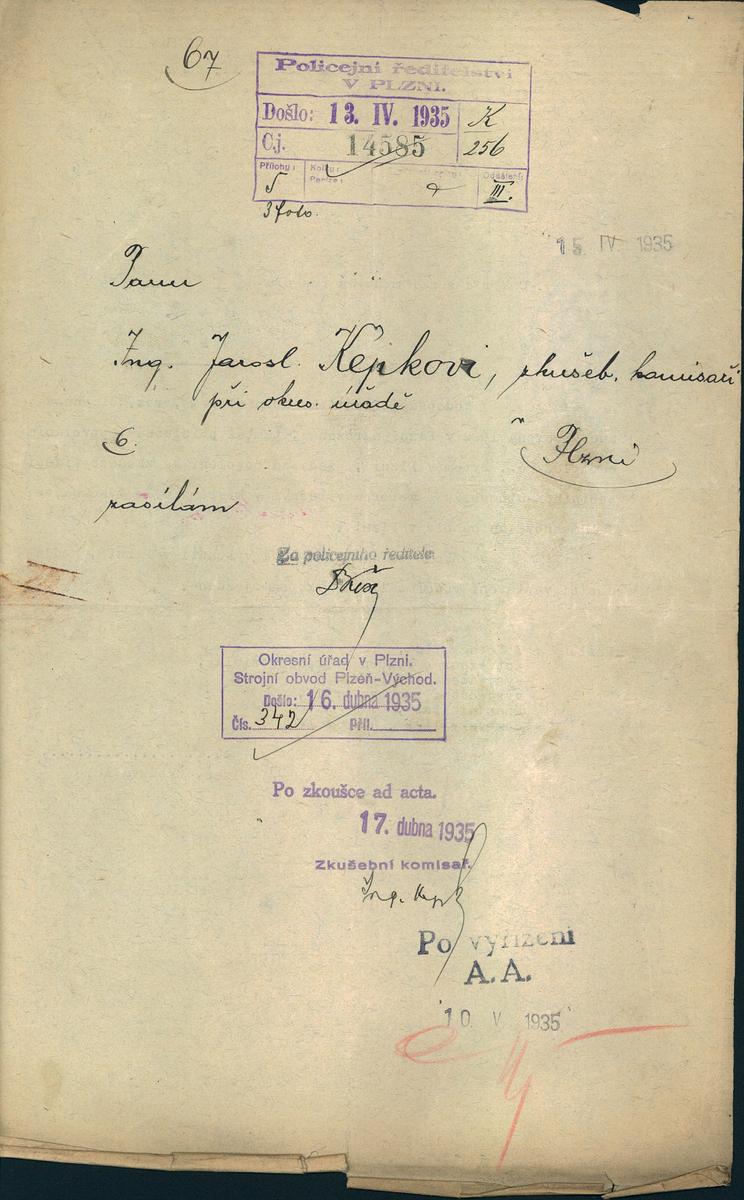 67
Policejní ředitelství
V PLZNI.
Došlo: 13. IV. 1935 K
Čj. 14585 256
Přílohy: Kolky: Oddělení:
5 Peníze: III.
3 foto.
15. IV. 1935
Panu
Ing. Jarosl. Kepkovi, zkušeb. komisaři
při okres. úřadě
v Plzni
6.
zasílám
Za policejního ředitele
Okresní úřad v Plzni.
Strojní obvod Plzeň-Východ.
Došlo: 16. dubna 1935
Čís. 342 Příl.
Po zkoušce ad acta.
17. dubna 1935
Zkušební komisař.
Ing. Kepk
Po vyřízení
A.A.
10. V 1935